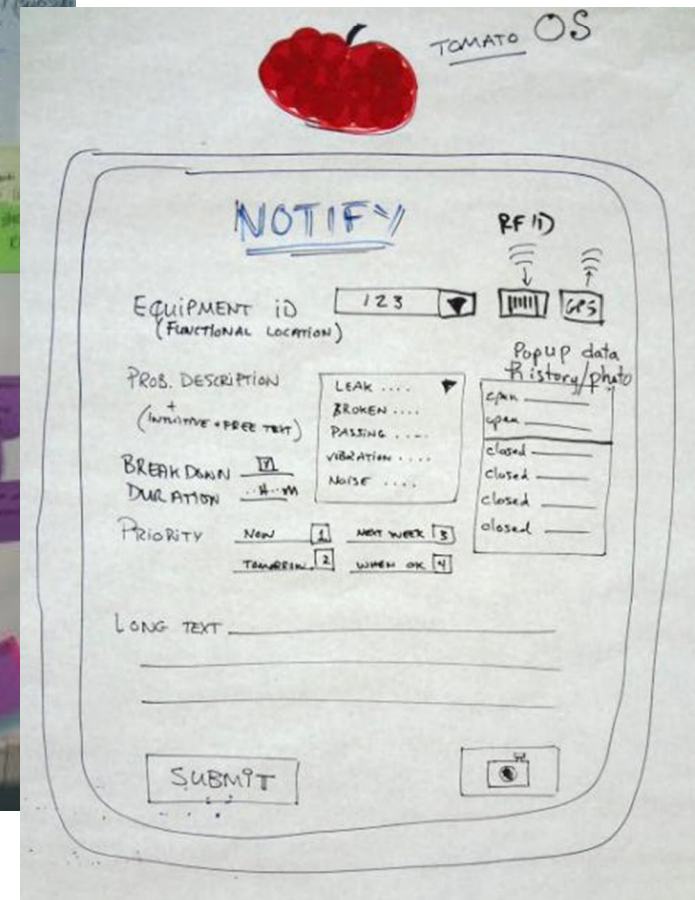 TOMATO OS
NOTIFY
RFID
EQUIPMENT ID
(FUNCTIONAL LOCATION)
123
GPS
Popup data
history/photo
PROB. DESCRIPTION
+
(INTUITIVE + FREE TEXT)
LEAK ....
BROKEN ....
PASSING ....
VIBRATION ....
NOISE ....
open
open
closed
closed
closed
closed
BREAKDOWN Y
DURATION ..H..M
PRIORITY
NOW 1
NEXT WEEK 3
TOMORROW 2
WHEN OK 4
LONG TEXT
SUBMIT